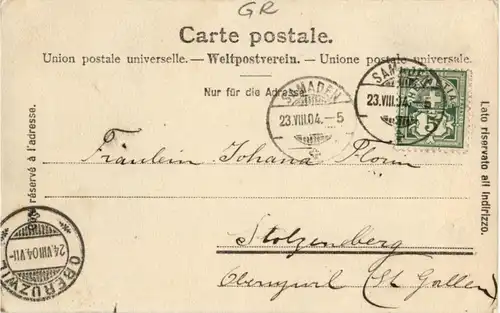 GR
Carte postale.
Union postale universelle. — Weltpostverein. — Unione postale universale.
Nur für die Adresse.
SAMADEN
23.VIII.04.-5
SAMADEN
23.VIII.04.-5
HELVETIA
5
Côté réservé à l'adresse.
Lato riservato all' indirizzo.
Fräulein Johana
Stolzenberg
Oberuzwil (St Gallen)
OBERUZWIL
24.VIII.04.VII-